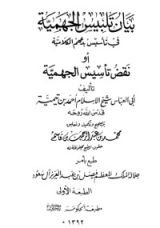 بيان تلبيس الجهمية
في تأسيس بدعهم الكلامية
أو
نقض تأسيس الجهمية
تأليف
أبي العباس شيخ الإسلام أحمد بن تيمية
قدس الله روحه
بتصحيح وتكميل وتعليق
محمد بن عبد الرحمن بن قاسم
طبع بأمر
جلالة الملك المعظم فيصل بن عبد العزيز آل سعود
الطبعة الأولى
١٣٩٢